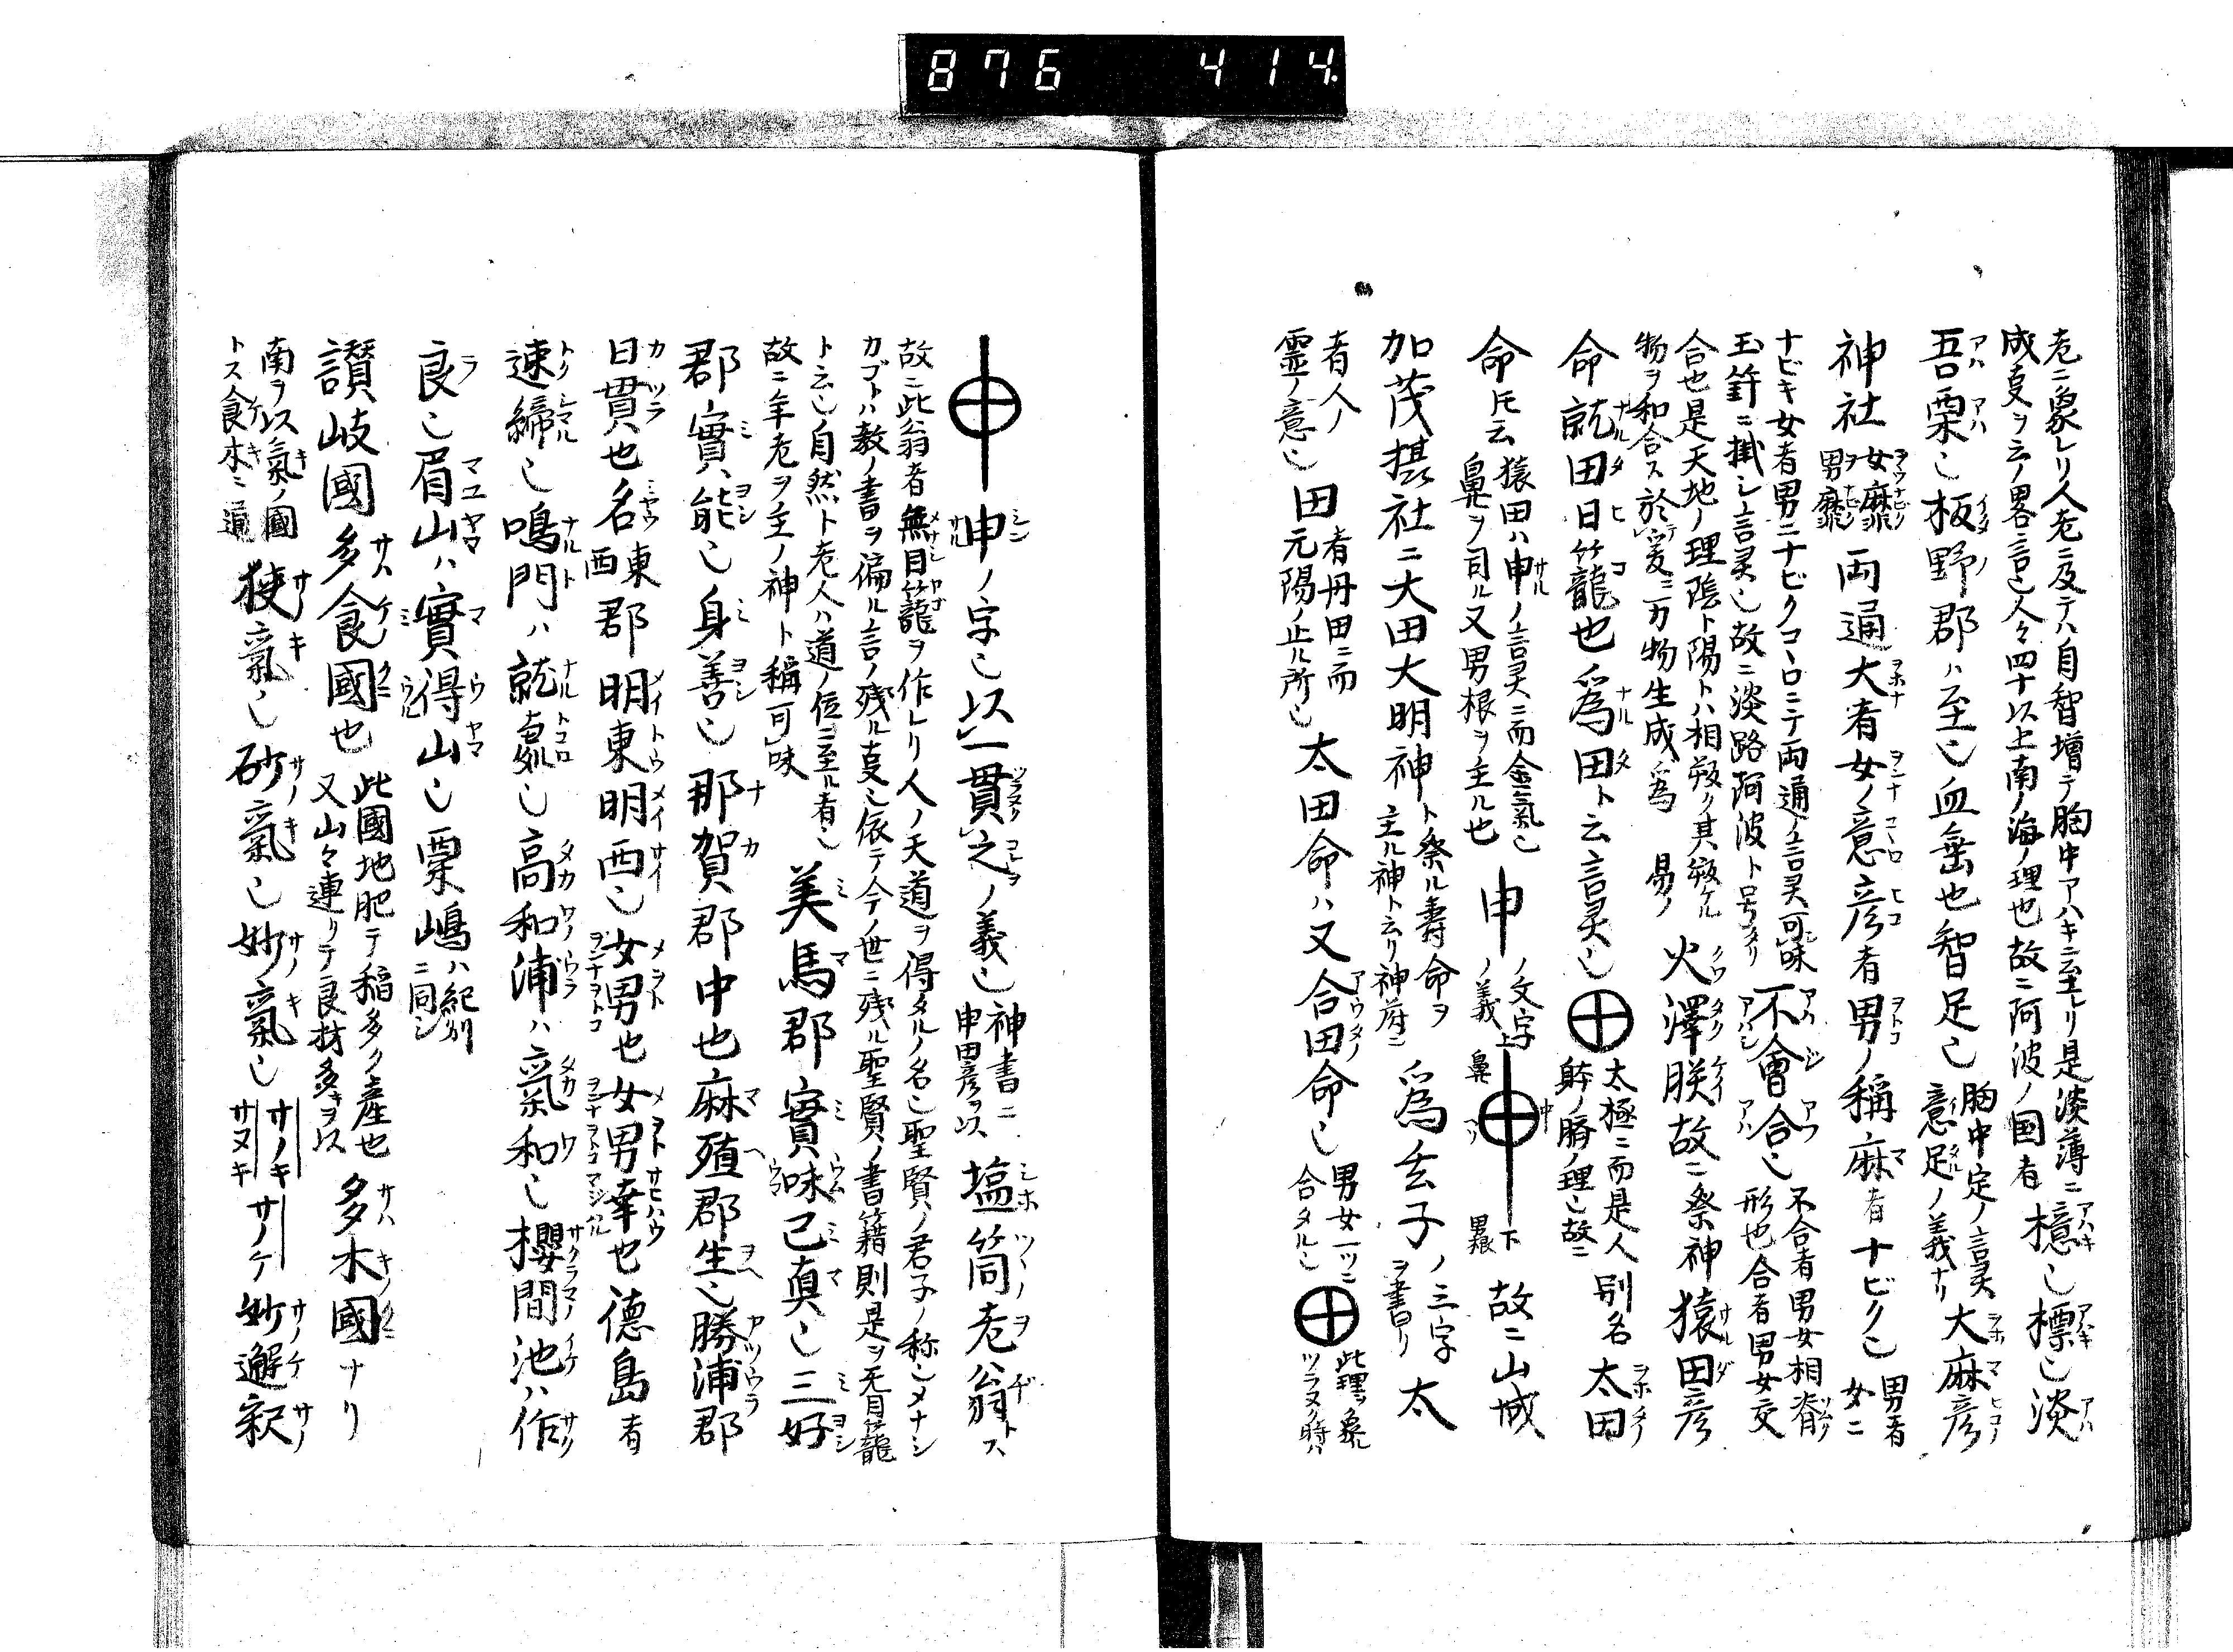 876 414.
老ニ象レリ人老ニ及テハ自智増テ胸中アハキニ至レリ是淡薄ニ
成㕝ヲ云ノ畧言也人々四十以上南ノ海ノ理也故ニ阿波ノ国者
檍也標也淡
吾栗也板野郡ハ至也血垂也智足也
胸中定ノ言灵
意足ノ義ナリ
大麻彦
神社
女麻
男麻
両通大者女ノ意彦者男ノ稱麻者ナビク也
男者
女ニ
ナビキ女者男ニナビクコヽロニテ両通ノ言灵可味
玉鉾ニ掛シ言灵也故ニ淡路阿波ト号タリ
不會合也
不合者男女相脊
形也合者男女交
合也是天地ノ理陰ト陽トハ相殺ク其殺ケル
物ヲ和合ス於爰ニ万物生成爲
易ノ
火澤睽故ニ祭神猿田彦
命就田日竹籠也爲田ト云言灵也
太極ニ而是人
躰ノ臍ノ理也故ニ
別名
太田
命トモ云
猿田ハ申ノ言灵ニ而金氣也
鼻ヲ司ル又男根ヲ主ル也
申
ノ文字
ノ義
上
鼻
中
下
男根
故ニ山城
加茂摂社ニ大田大明神
ト祭ル壽命ヲ
主ル神ト云リ神前ニ
爲玄子
ノ三字
ヲ書リ
太
者人ノ
霊ノ意也
田
者丹田ニ而
元陽ノ止ル所也
太田命ハ又合田命也
男女一ツニ
合タル也
此理ヲ象ル
ツラヌク時ハ
申ノ字也以一貫之ノ義也
神書ニ
申田彦ヲ以
塩筒老翁トス
故ニ此翁者無目竹籠ヲ作レリ人ノ天道ヲ得タルノ名也聖賢ノ君子ノ称也メナシ
カゴトハ教ノ書ヲ偏ル言ノ残ル㕝也依テ今ノ世ニ残ル聖賢ノ書籍則是ヲ无目竹籠
ト云也自然ト老人ハ道ノ位ニ至ル者也
故ニ年老ヲ主ノ神ト稱可味
美馬郡實味己真也三好
郡實能也身善也那賀郡中也麻殖郡生也勝浦郡
日貫也名
東
西
郡明東明西也女男也女男幸也德島者
速締也鳴門ハ就處也高和浦ハ氣和也櫻間池ハ作
良也眉山ハ實得山也粟嶋
ハ紀州
ニ同シ
讃岐國多食國也
此國地肥テ稲多ク産也
又山々連リテ良材多キヲ以
多木國ナリ
南ヲ以氣ノ國
トス食木ニ通
狭氣ノ也砂氣也妙氣也
サノキ
サヌキ
サノケ妙邂釈